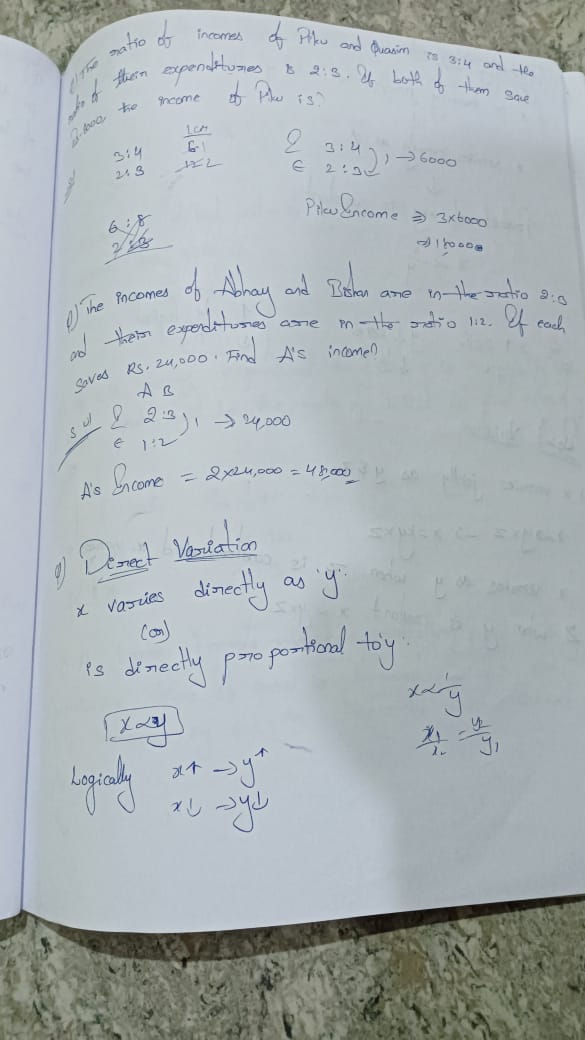 Q) The ratio of incomes of Piku and Quasim is 3:4 and the
ratio of their expenditures is 2:3. If both of them save
Rs.6000 the income of Piku is?
3:4
2:3
I 3:4
E 2:3 ) 1 → 6000
6:8
2:3
Piku Income ⇒ 3x6000
⇒ 18000
Q) The incomes of Abhay and Bishan are in the ratio 2:3
and their expenditures are in the ratio 1:2. If each
saves Rs. 24,000. Find A's income?
A B
sol I 2:3
E 1:2 ) 1 → 24,000
A's Income = 2x24,000 = 48,000
Q) Direct Variation
x varies directly as 'y'.
(or)
is directly proportional to 'y'.
x∝y
x∝1/y
x1/x2 = y2/y1
Logically x↑ → y↑
x↓ → y↓